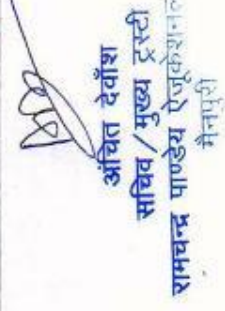 अंचित देवाँश
सचिव/मुख्य ट्रस्टी
रामचन्द्र पाण्डेय ऐजूकेशनल
मैनपुरी